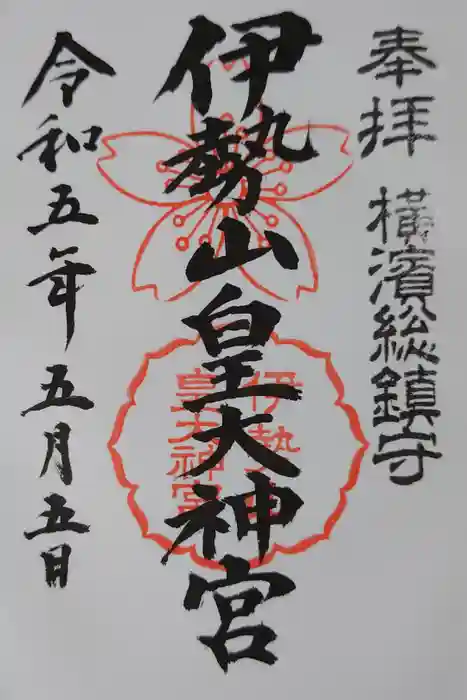 奉拝 横濱総鎮守
伊勢山皇大神宮
伊勢山
皇大神宮
令和五年五月五日